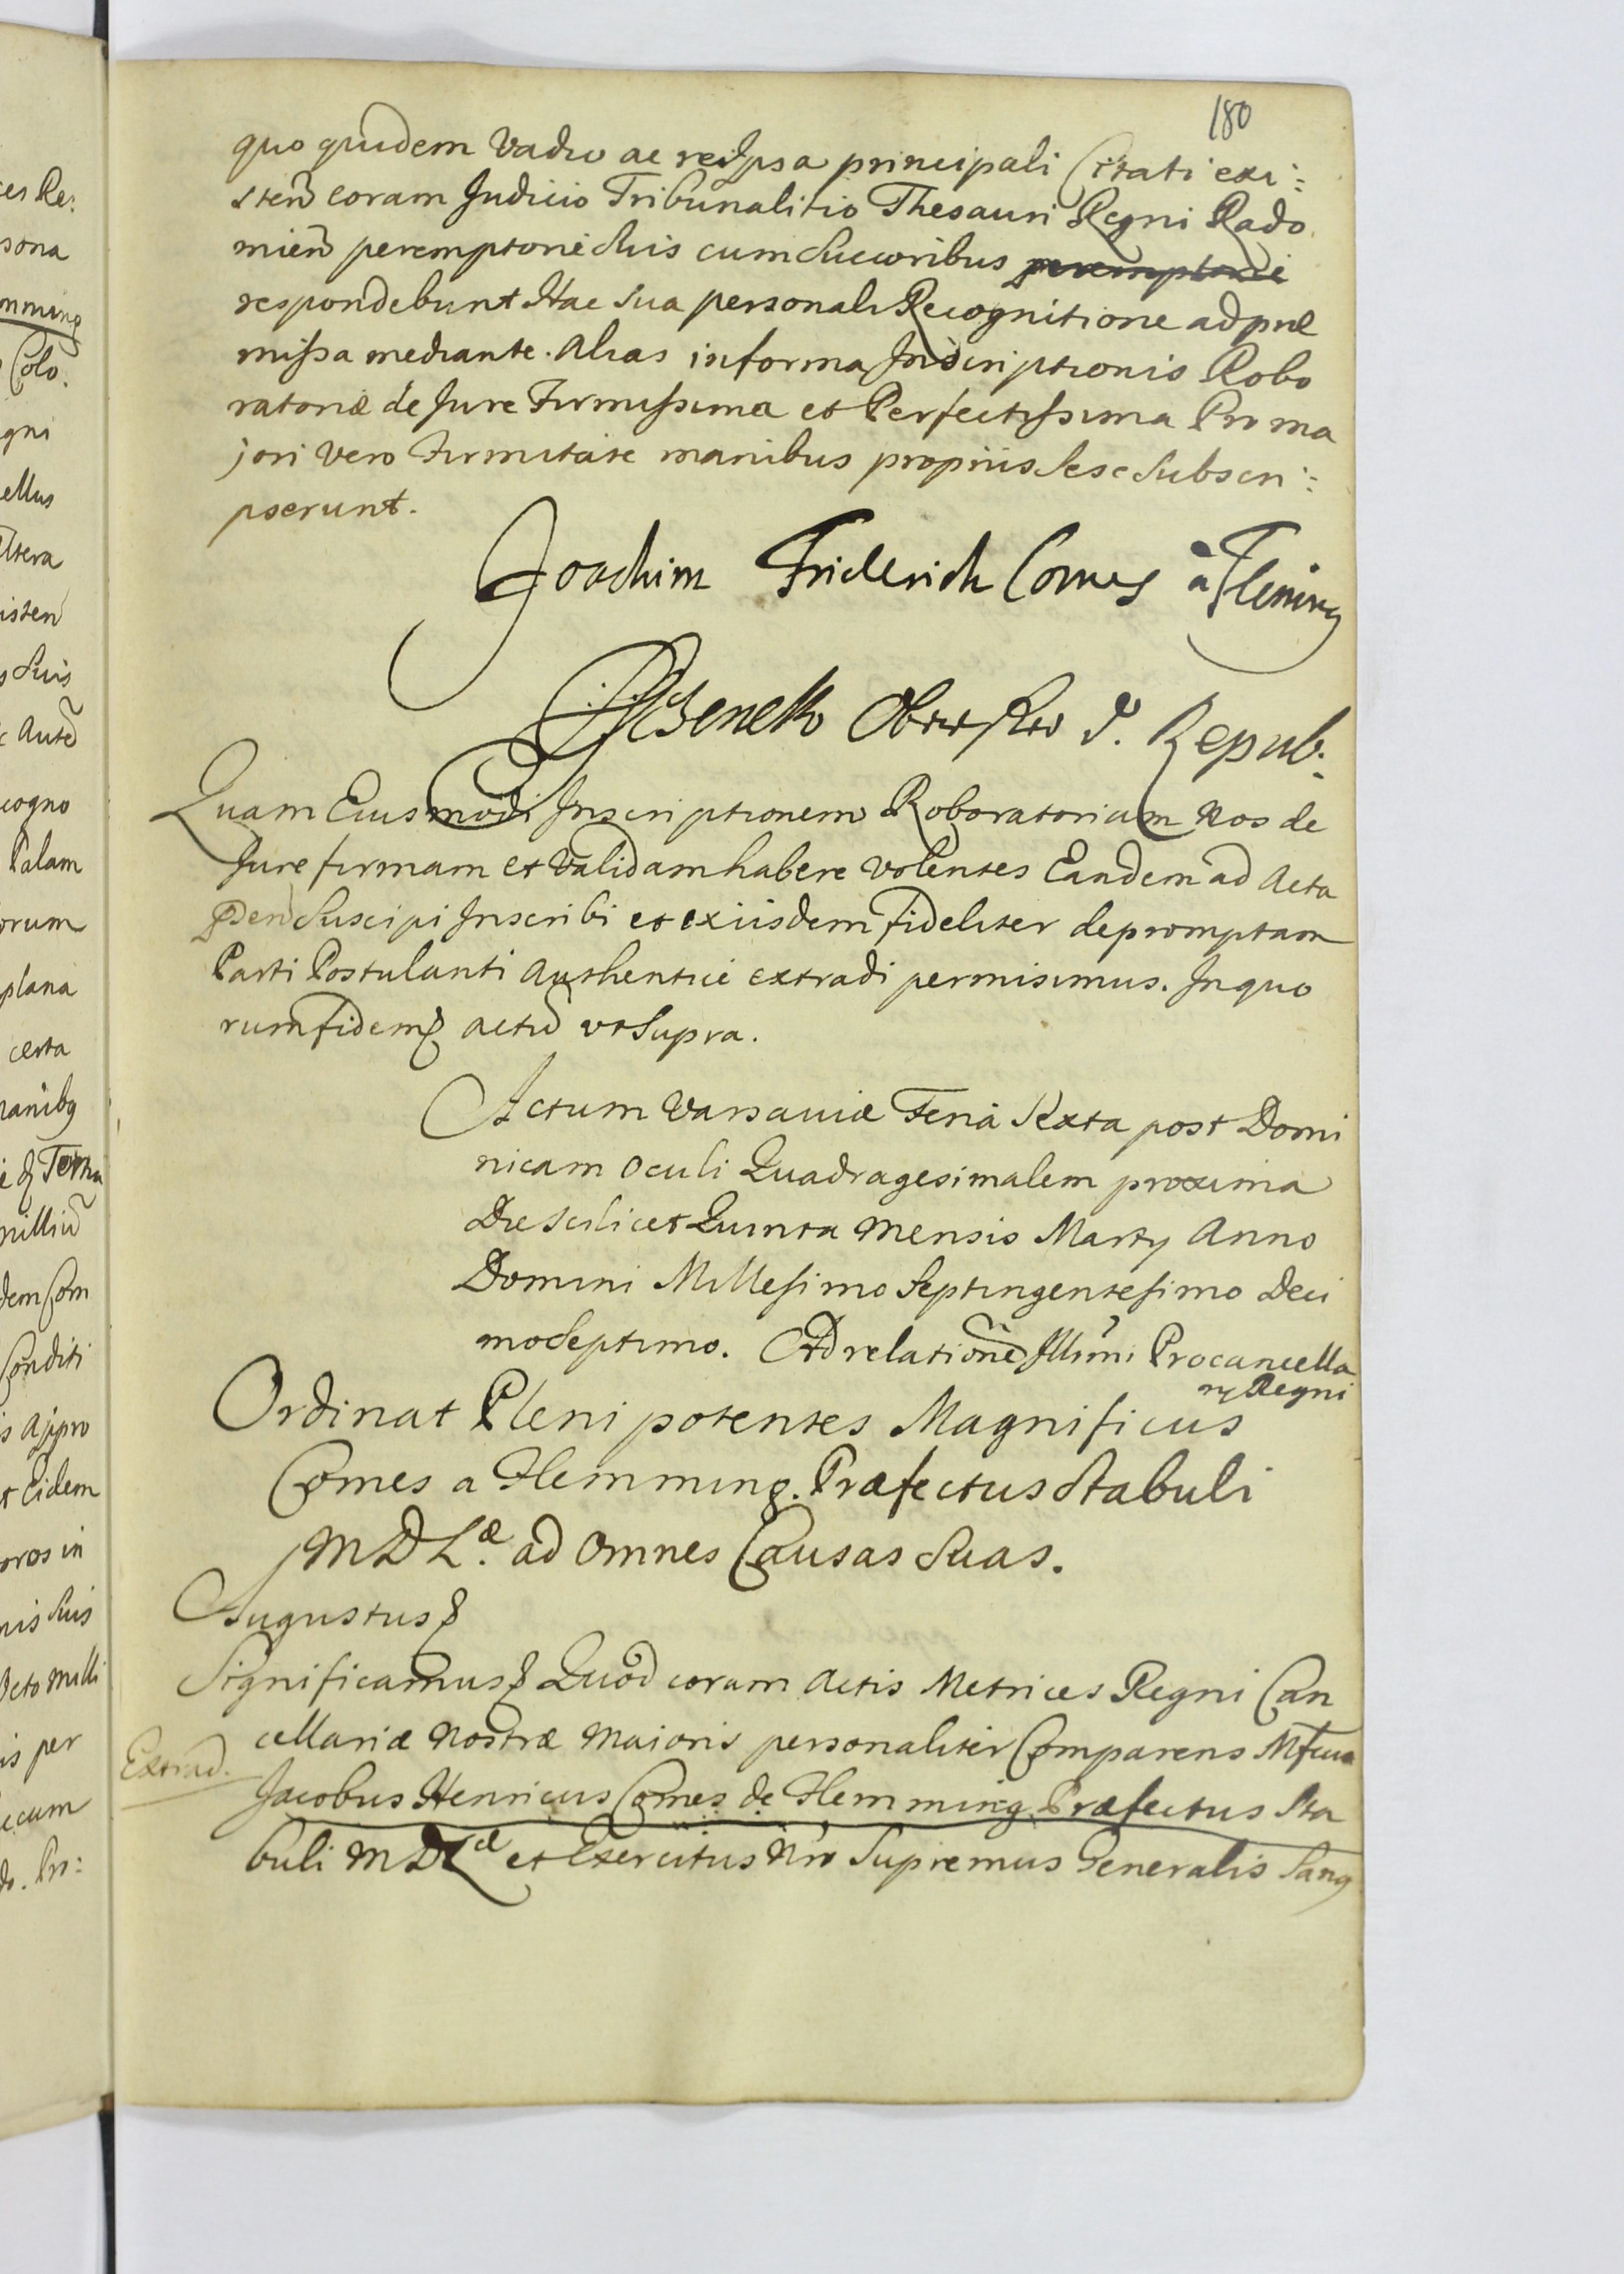 180
quo quidem Vadio ac re ipsa principali Citati exi:
sten coram Judicio Tribunalitio Thesauri Regni Rado
mien peremptorie Suis cum Succoribus peremptorie
respondebunt Hac Sua personali Recognitione ad præ
missa mediante. Alias in forma Inscriptionis Robo
ratoriæ de Jure Firmissima et Perfectissima Pro ma
jori Vero Firmitate manibus propriis Sese Subscri:
pserunt.
Joachim Friderich Comes à Fleming
Obrister d. Repub:
Quam Eiusmodi Inscriptionem Roboratoriam Nos de
Jure firmam et Validam habere Volentes Eandem ad Acta
pnden Suscipi Inscribi et ex iisdem fideliter depromptam
Parti Postulanti Authentice extradi permisimus. In quo
rum fidem Actu ut Supra.
Actum Varsaviæ Feria Sexta post Domi
nicam Oculi Quadragesimalem proxima
Die Scilicet Quinta Mensis Martÿ Anno
Domini Millesimo Septingentesimo Deci
mo Septimo. Ad relatione Illmi Procancella
rÿ Regni
Ordinat Plenipotentes Magnificus
Comes a Flemming. Præfectus Stabuli
M D L.æ ad Omnes Causas Suas.
Augustus
Significamus Quod coram Actis Metrices Regni Can
cellariæ Nostræ Maioris personaliter Comparens Mfcus
Extrad.
Jacobus Henricus Comes de Flemming Præfectus Sta
buli M D L æ et Exercitus Nri Supremus Generalis Sanq
ces Re:
sona
mming
Colo.
gni
ellus
ltera
isten
s Suis
c Aute
cogno
Palam
orum
plana
certa
dem Com
Conditi
s Appro
t Eidem
oros in
nis Suis
Octo Milli
is per
secum
do. Pro: